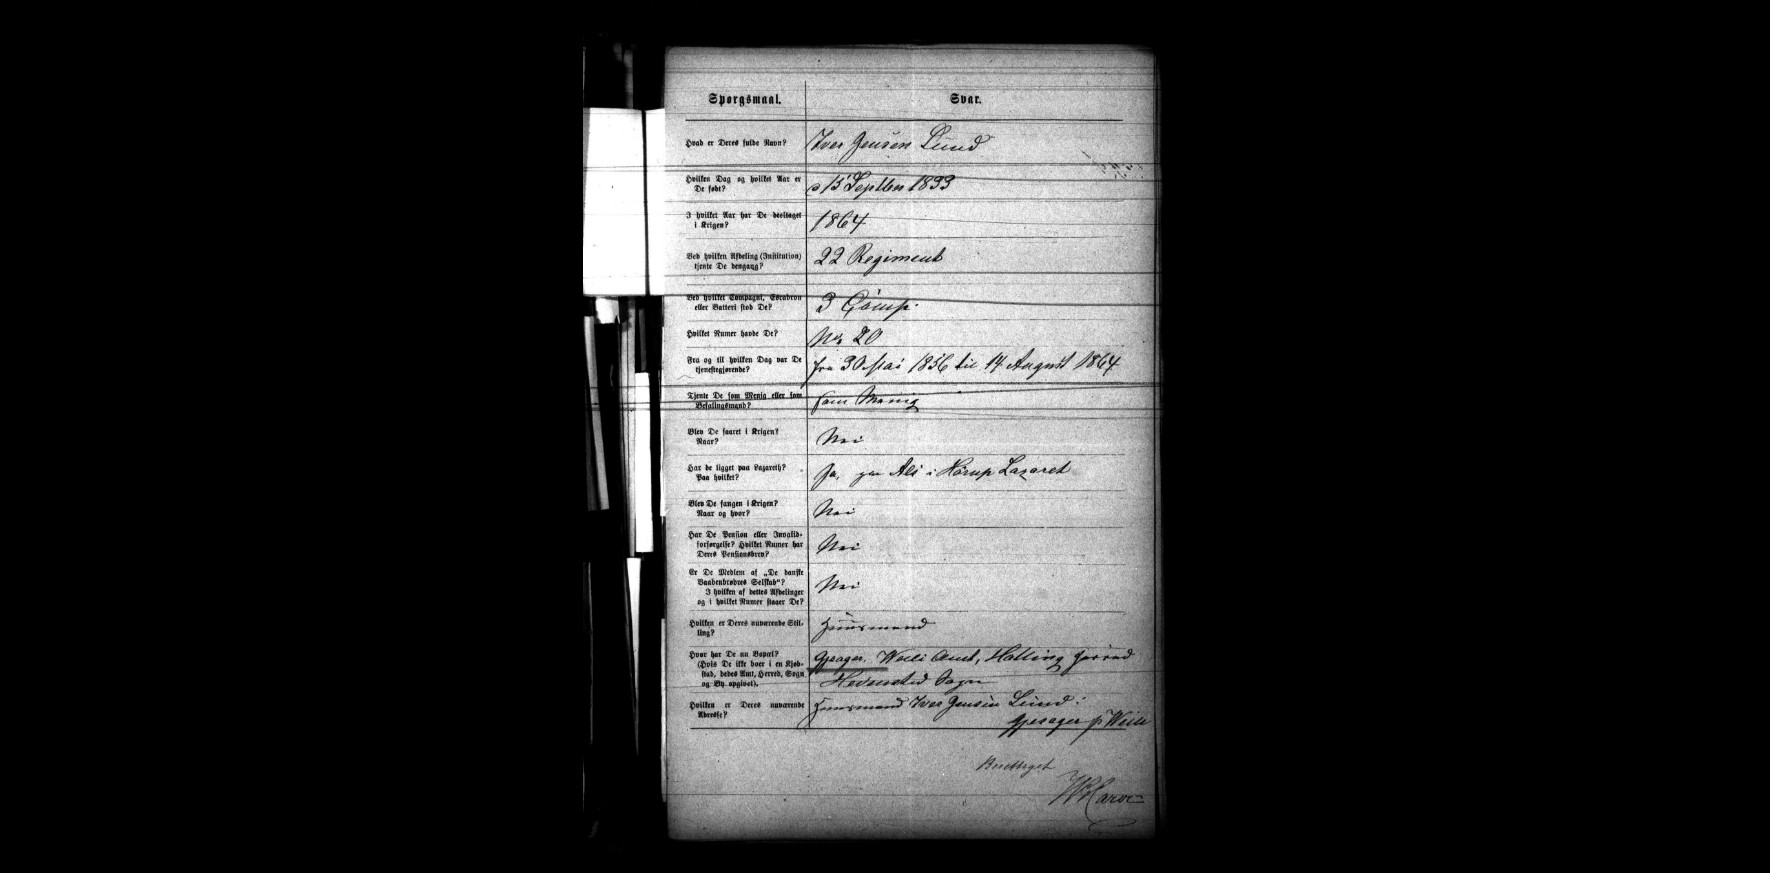 Spørgsmaal. Svar.
Hvad er Deres fulde Navn? Iver Jensen Lund
Hvilken Dag og hvilket Aar er
De født? d 15 Septber 1833
I hvilket Aar har De deeltaget
i Krigen? 1864
Ved hvilken Afdeling (Institution)
tjente De dengang? 22 Regiment
Ved hvilket Compagni, Escadron
eller Batteri stod De? 3 Comp.
Hvilket Numer havde De? No 20
Fra og til hvilken Dag var De
tjenestegjørende? fra 30 Mai 1856 til 14 August 1864
Tjente De som Menig eller som
Befalingsmand? som Menig
Blev De saaret i Krigen?
Naar? Nei
Har de ligget paa Lazareth?
Paa hvilket? Ja, paa Als i Hørup Lazaret
Blev De fangen i Krigen?
Naar og hvor? Nei
Har De Pension eller Invalid-
forsørgelse? Hvilket Numer har
Deres Pensionsbrev? Nei
Er De Medlem af „De danske
Vaabenbrødres Selskab“?
I hvilken af dettes Afdelinger
og i hvilket Numer staaer De? Nei
Hvilken er Deres nuværende Stil-
ling? Huusmand
Hvor har De nu Bopæl?
(Hvis De ikke boer i en Kjøb-
stad, bedes Amt, Herred, Sogn
og By opgivet). Gjesager. Weile Amt, Hatting Herred
Hedensted Sogn
Hvilken er Deres nuværende
Adresse? Huusmand Iver Jensen Lund:
Gjesager pr Weile